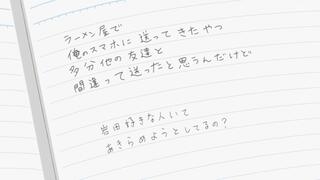 ラーメン屋で
俺のスマホに送ってきたやつ
多分他の友達と
間違って送ったと思うんだけど
岩田好きな人いて
あきらめようとしてるの？